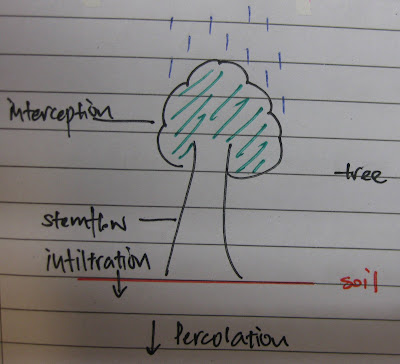 interception
tree
stemflow
infiltration
soil
Percolation